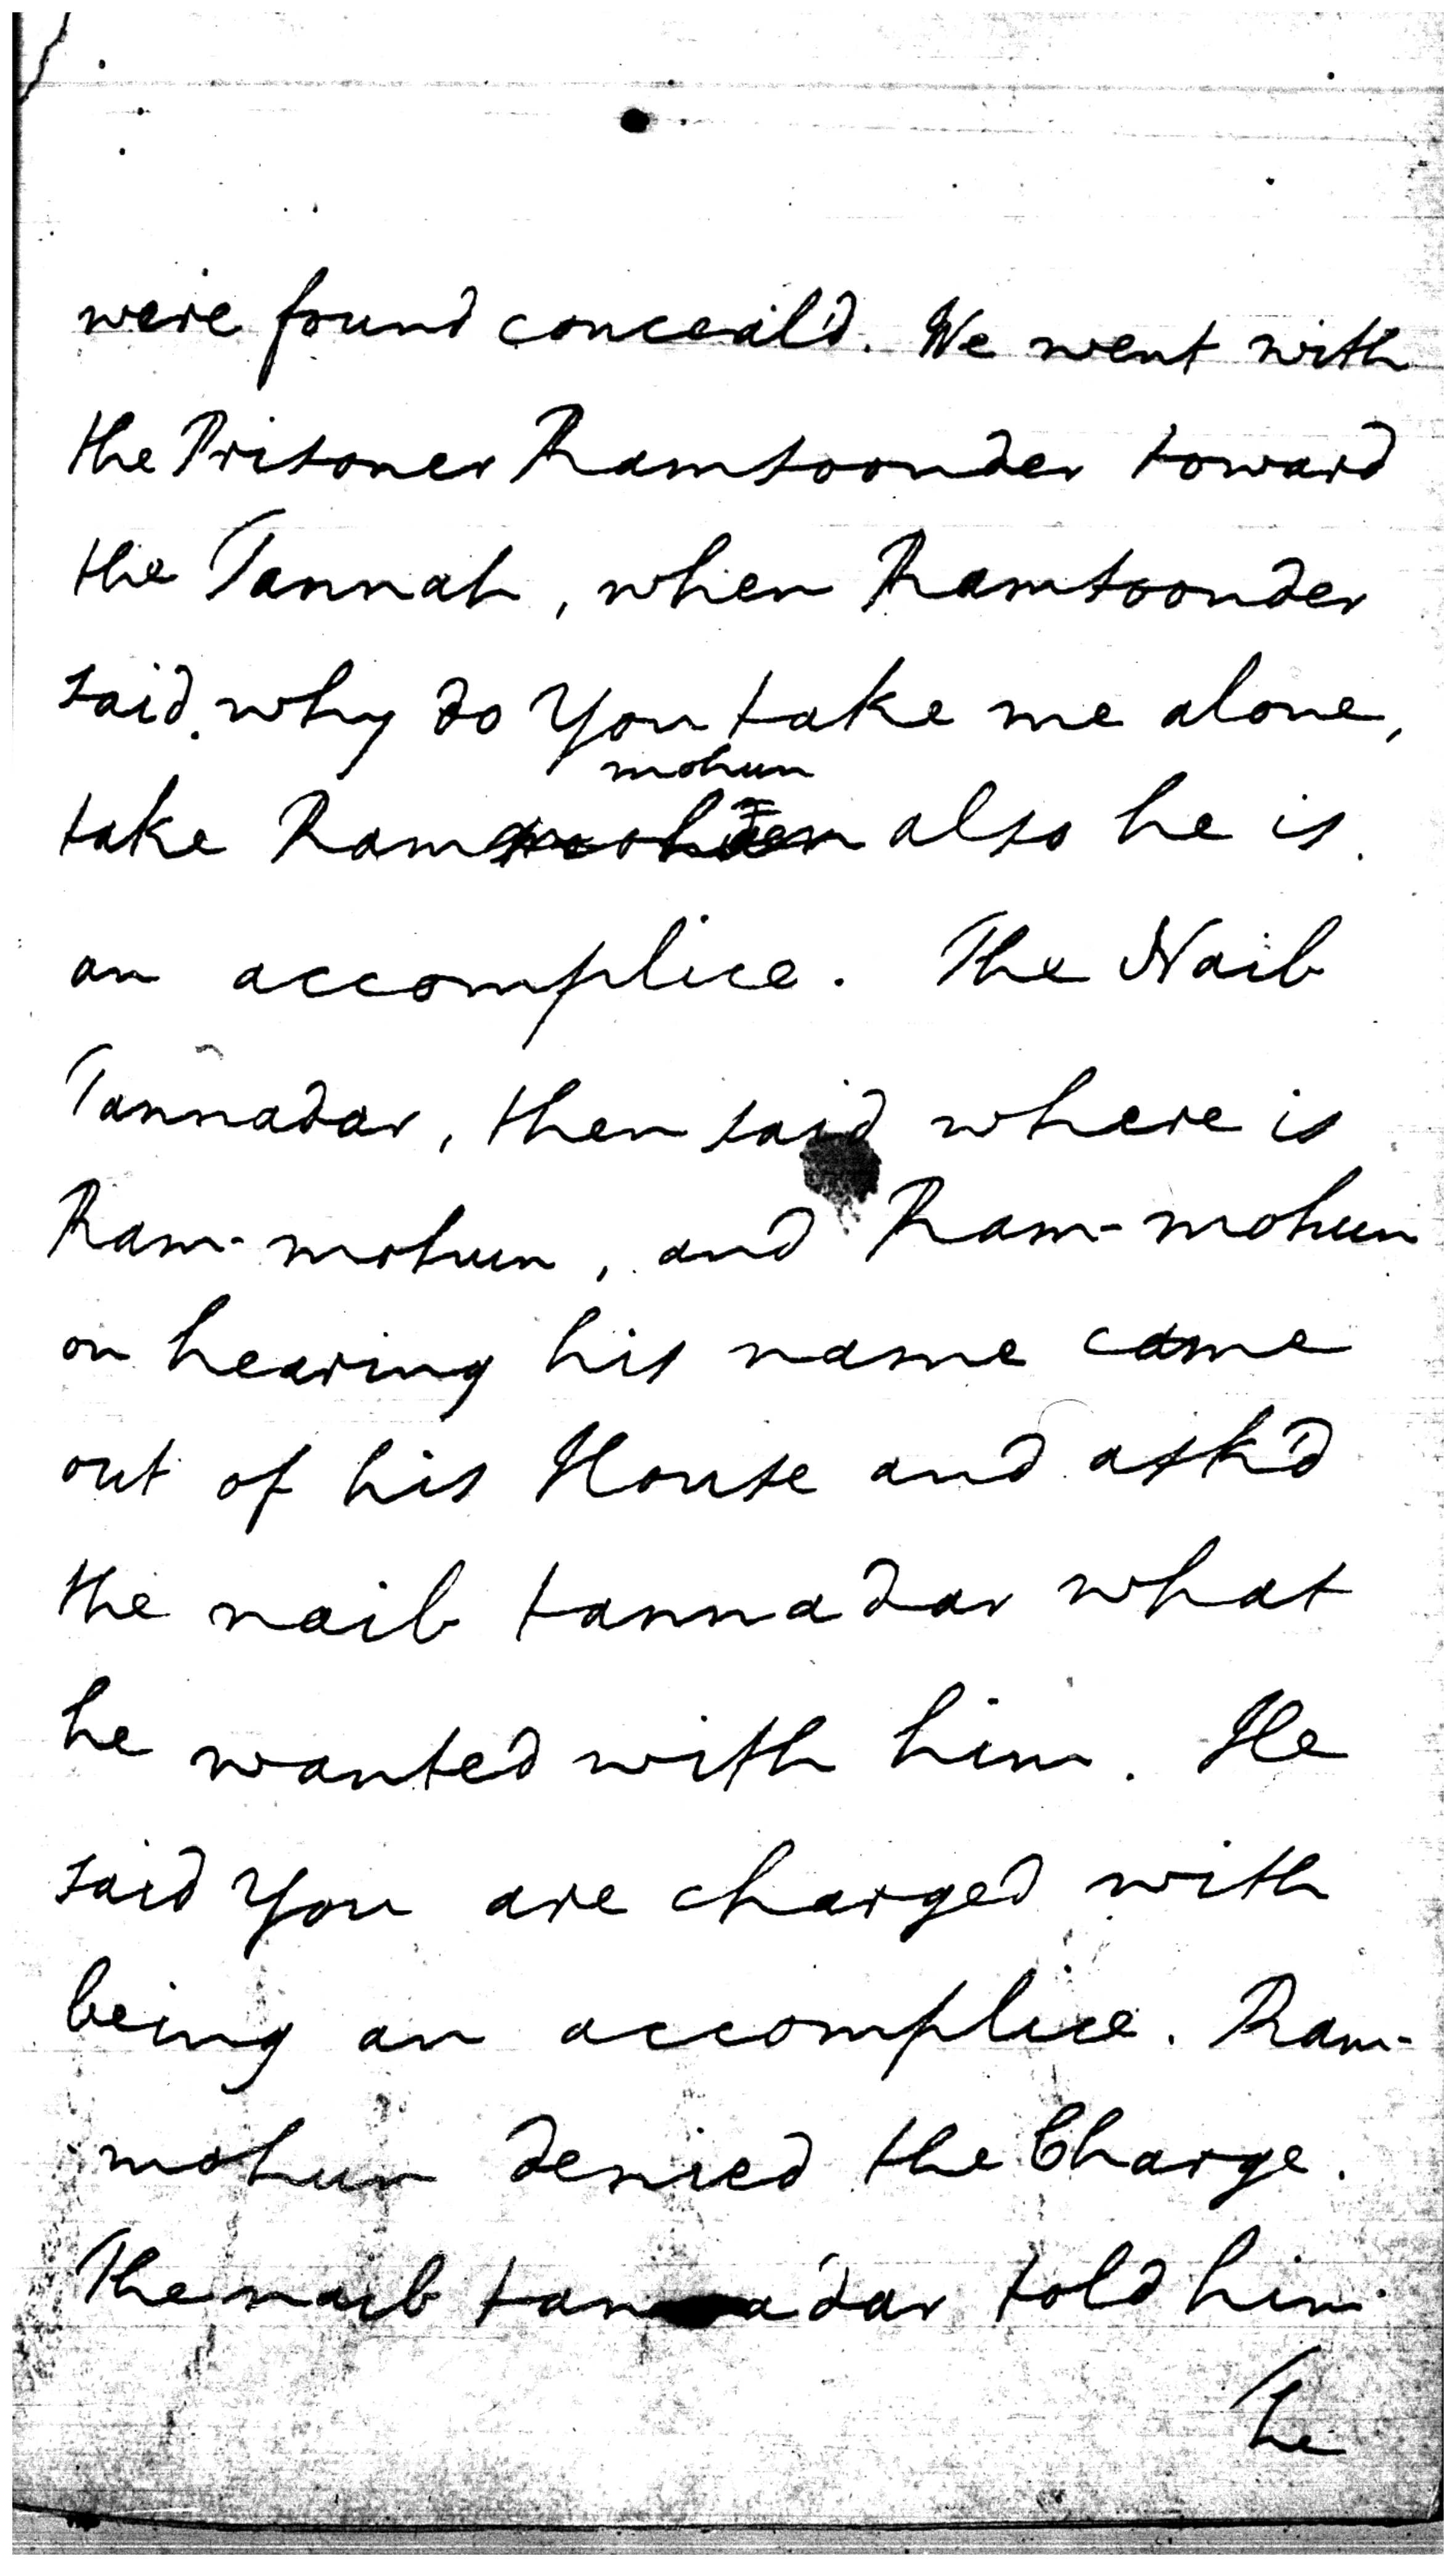 were found conceal'd. We went with
the Prisoner Ramsoonder toward
the Tannah, when Ramsoonder
said why do You take me alone,
mohun
take Ram also he is
an accomplice. The Naib
Tannadar, then said where is
Ram-mohun, and Ram-mohun
on hearing his name came
out of his House and ask'd
the naib tannadar what
he wanted with him. He
said You are charged with
being an accomplice. Ram-
mohun denied the Charge.
The naib tannadar told him
he